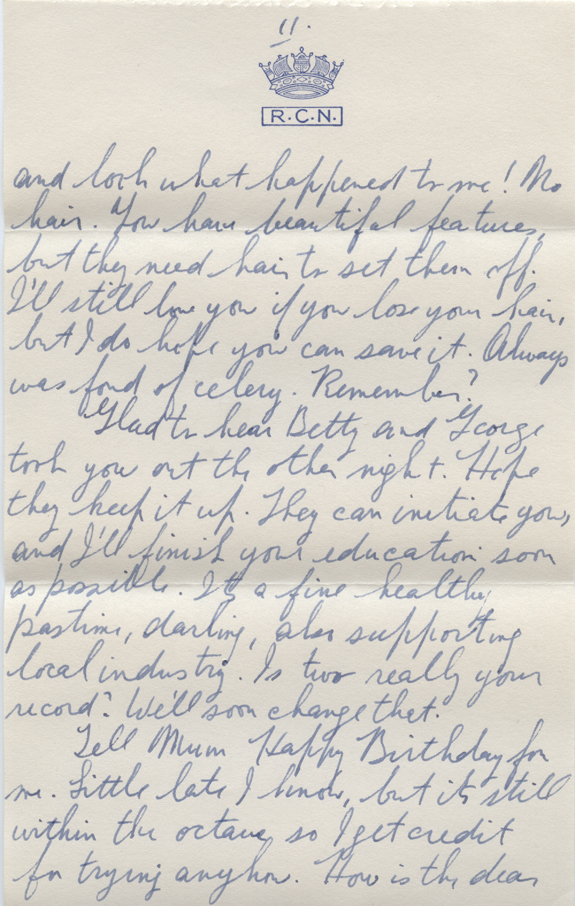 11.
R.C.N.
and look what happened to me! No
hair. You have beautiful features,
but they need hair to set them off.
I'll still love you if you lose your hair,
but I do hope you can save it. Always
was fond of celery. Remember?
Glad to hear Betty and George
took you out the other night. Hope
they keep it up. They can initiate you,
and I'll finish your education soon
as possible. It's a fine healthy
pastime, darling, also supporting
local industry. Is two really your
record? We'll soon change that.
Tell Mum Happy Birthday for
me. Little late I know, but it's still
within the octave so I get credit
for trying anyhow. How is the dear